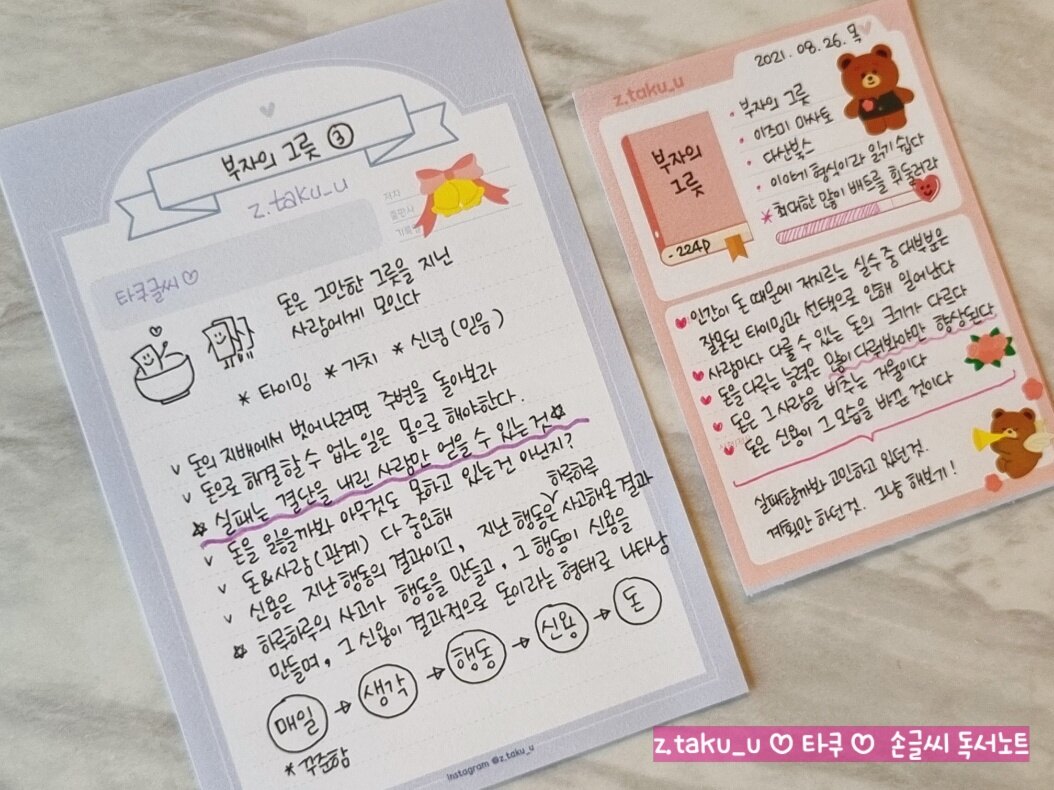 부자의 그릇 ③
z.taku_u
저자
출판사
기록
타쿠글씨♡
돈은 그만한 그릇을 지닌
사람에게 모인다
* 타이밍 * 가치 * 신념(믿음)
v 돈의 지배에서 벗어나려면 주변을 돌아보라
v 돈으로 해결할 수 없는 일은 몸으로 해야한다.
☆ 실패는 결단을 내린 사람만 얻을 수 있는 것☆
v 돈을 잃을까봐 아무것도 못하고 있는건 아닌지?
v 돈&사람(관계) 다 중요해
v 신용은 지난 행동의 결과이고, 지난 행동은 하루하루 사고해온 결과
☆ 하루하루의 사고가 행동을 만들고, 그 행동이 신용을
만들며, 그 신용이 결과적으로 돈이라는 형태로 나타남
매일 → 생각 → 행동 → 신용 → 돈
* 꾸준함
Instagram @z_taku_u
2021. 08. 26. 목
z.taku_u
부자의
그릇
- 224p
• 부자의 그릇
• 이즈미 마사토
• 다산북스
• 이야기 형식이라 읽기 쉽다
* 최대한 많이 배트를 휘둘러라
♥ 인간이 돈 때문에 저지르는 실수 중 대부분은
잘못된 타이밍과 선택으로 인해 일어난다
♥ 사람마다 다룰 수 있는 돈의 크기가 다르다
♥ 돈을 다루는 능력은 많이 다뤄봐야만 향상된다
♥ 돈은 그 사람을 비추는 거울이다
♥ 돈은 신용이 그 모습을 바꾼 것이다
실패할까봐 고민하고 있던것.
계획만 하던것. 그냥 해보기!
z.taku_u ♡ 타쿠 ♡ 손글씨 독서노트